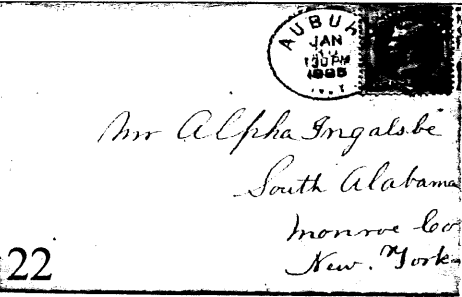 AUBU
JAN
130 PM
N.Y.
Mr Alpha Ingalsbe
South Alabama
Monroe Co
New. York
22